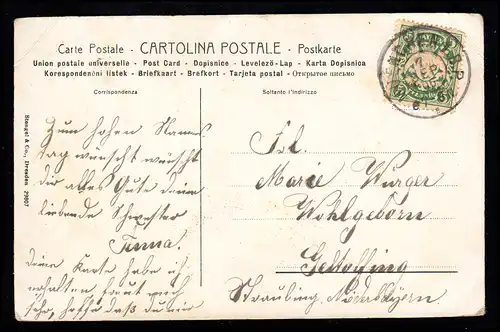 Carte Postale - CARTOLINA POSTALE - Postkarte
Union postale universelle - Post Card - Dopisnice - Levelező-Lap - Karta Dopisnica
Korespondenční lístek - Briefkaart - Brefkort - Tarjeta postal - Открытое письмо
Corrispondenza
Soltanto l'indirizzo
Stengel & Co., Dresden 29907
Zum hohen Namens
tag wünscht wünscht
dir alles Gute deine
liebende Schwester
Anna.
Deine Karte habe ich
erhalten freut mich
sehr, hoffe daß du
Frl.
Marie Würger
Wohlgeborn
Geltolfing
Straubing, Niederbayern